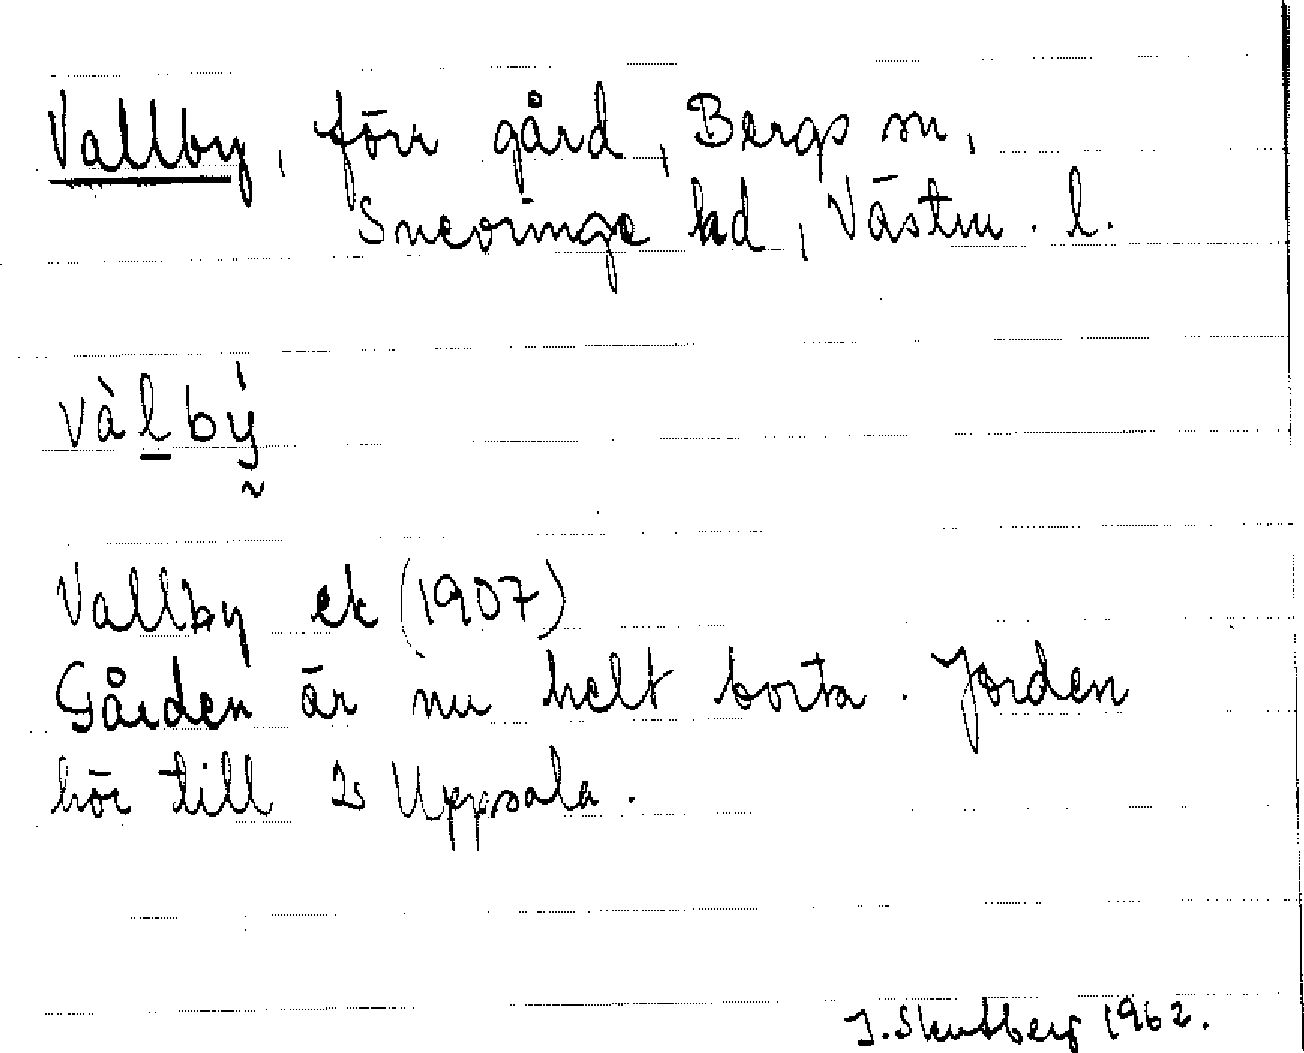 Vallby, förr gård, Bergs sn,
Snevringe hd, Västm. l.
vàlbý
Vallby ek (1907)
Gården är nu helt borta. Jorden
hör till Uppsala.
J. 1962.